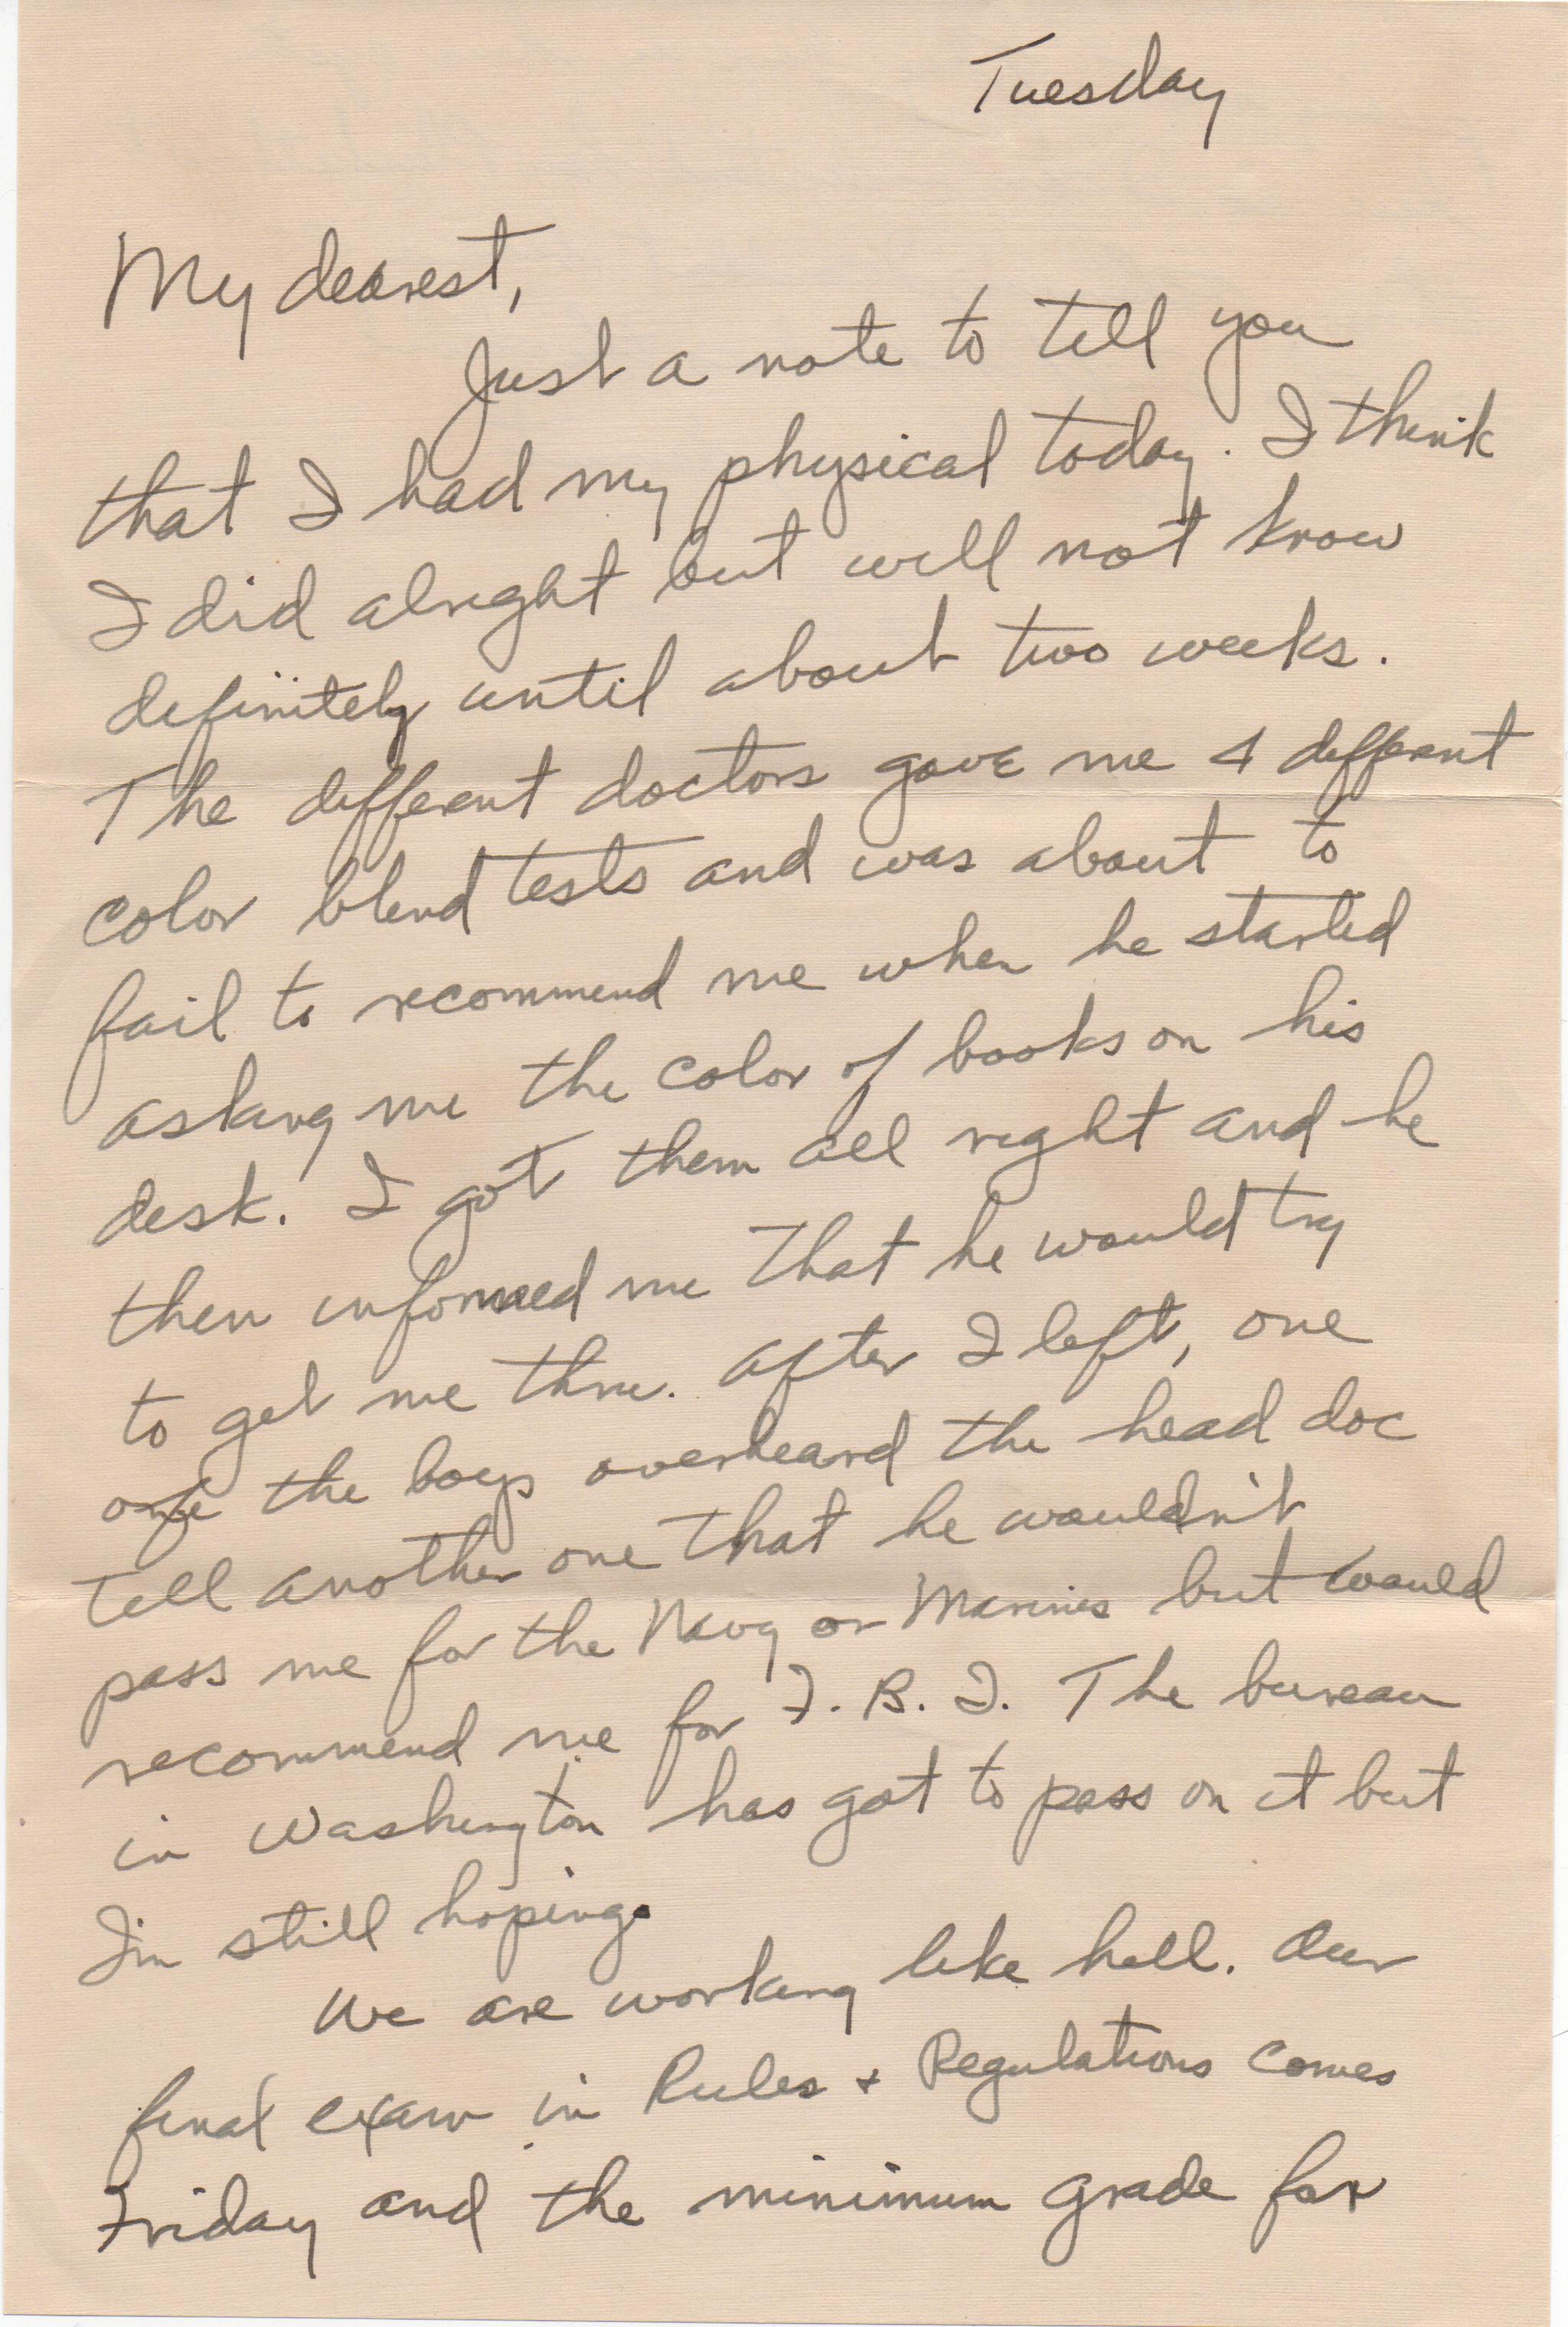 Tuesday
My dearest,
Just a note to tell you
that I had my physical today. I think
I did alright but will not know
definitely until about two weeks.
The different doctors gave me 4 different
color blind tests and was about to
fail to recommend me when he started
asking me the color of books on his
desk. I got them all right and he
then informed me that he would try
to get me thru. After I left, one
of the boys overheard the head doc
tell another one that he wouldn't
pass me for the Navy or Marines but would
recommend me for F. B. I. The bureau
in Washington has got to pass on it but
I'm still hoping.
We are working like hell. Our
final exam in Rules + Regulations comes
Friday and the minimum grade for